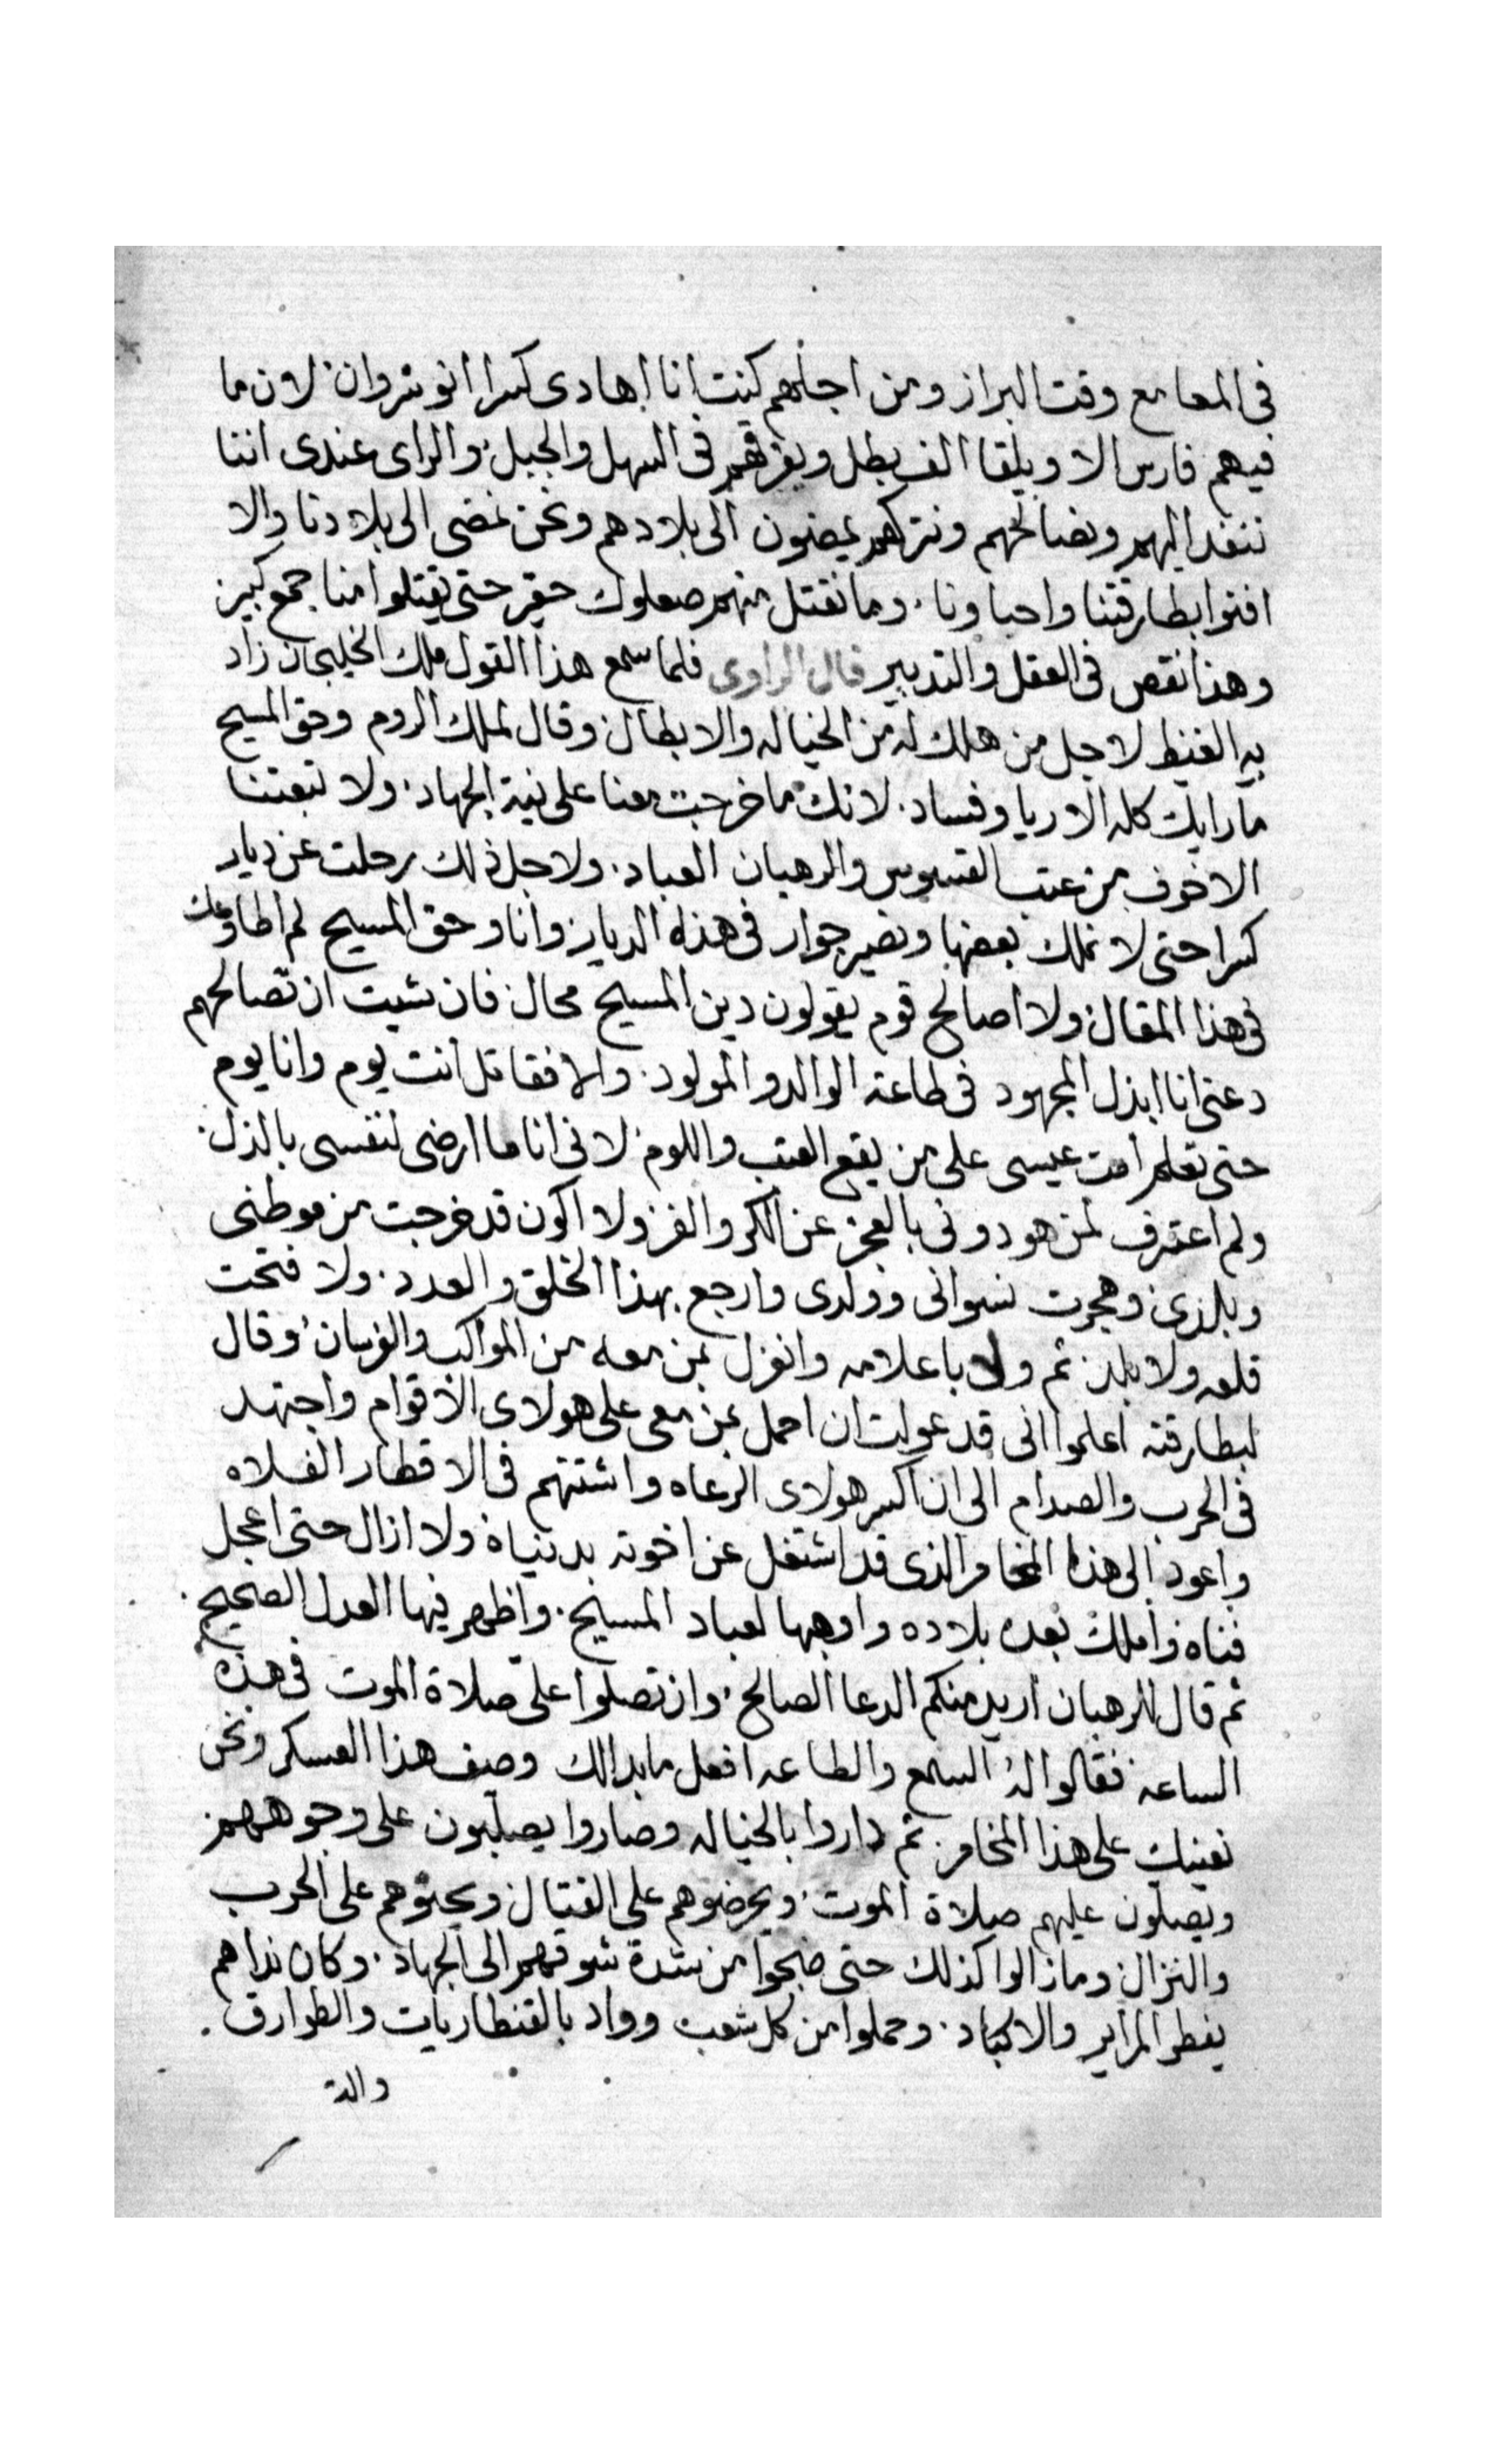 فى المعامع وقت البراز ومن اجلهم كنت انا اهادى كسرا انوشروان لان ما
فيهم فارس الا ويلقا الف بطل ويفرقهم فى السهل والجبل والراى عندى اننا
ننفد اليهم ونصالحهم ونتركهم يمضون الى بلادهم ونحن نمضى الى بلادنا والا
افنوا بطارقتنا واحباونا وما نقتل منهم صعلوك حقير حتى يقتلوا منا جمع كبير
وهذا نقص فى العقل والتدبير قال الراوى فلما سمع هذا القول ملك الخليجان زاد
به الغيظ لاجل من هلك له من الخياله والابطال وقال لملك الروم وحق المسيح
ما رايك كله الا ريا وفساد لانك ما خرجت معنا على نية الجهاد ولا تبعتنا
الا خوف من عتب القسوس والرهبان العباد ولاجل ذلك رحلت عن ديار
كسرا حتى لا نملك بعضها ونصير جوار فى هذه الديار وانا وحق المسيح لم اطاوعك
فى هذا المقال ولا اصالح قوم يقولون دين المسيح محال فان شيت ان تصالحهم
دعنى انا ابذل المجهود فى طاعة الوالد والمولود والا فقاتل انت يوم وانا يوم
حتى تعلم امت عيسى على من يقع العتب واللوم لانى انا ما ارضى لنفسى بالذل
ولم اعترف لمن هو دونى بالعجز عن الكر والفر ولا اكون قد خرجت من موطنى
وبلدى وهجرت نسوانى وولدى وارجع بهذا الخلق والعدد ولا فتحت
قلعه ولا بلد ثم ولا باعلامه وانعزل بمن معه من المواكب والفرسان وقال
لبطارقته اعلموا انى قد عولت ان احمل بمن معى على هولاى الاقوام واجتهد
فى الحرب والصدام الى ان اكسر هولاى الرعاه واشتتهم فى الاقطار الفلاه
واعود الى هذا المخامر الذى قد اشتغل عن اخوته بدنياه ولا ازال حتى اعجل
فناه واملك بعده بلاده واوهبها لعباد المسيح واظهر فيها العدل الصحيح
ثم قال للرهبان اريد منكم الدعا الصالح وان تصلوا على صلاة الموت فى هذه
الساعه فقالوا له السمع والطاعه افعل ما بدالك وصف هذا العسكر ونحن
نعينك على هذا المخامر ثم داروا بالخياله وصاروا يصلبون على وجوههم
ويصلون عليهم صلاة الموت ويحرضوهم على القتال ويحثوهم على الحرب
والنزال وما زالوا كذلك حتى ضجوا من شدة شوقهم الى الجهاد وكان نداهم
يفطر المراير والاكباد وحملوا من كل شعب وواد بالقنطاريات والطوارق